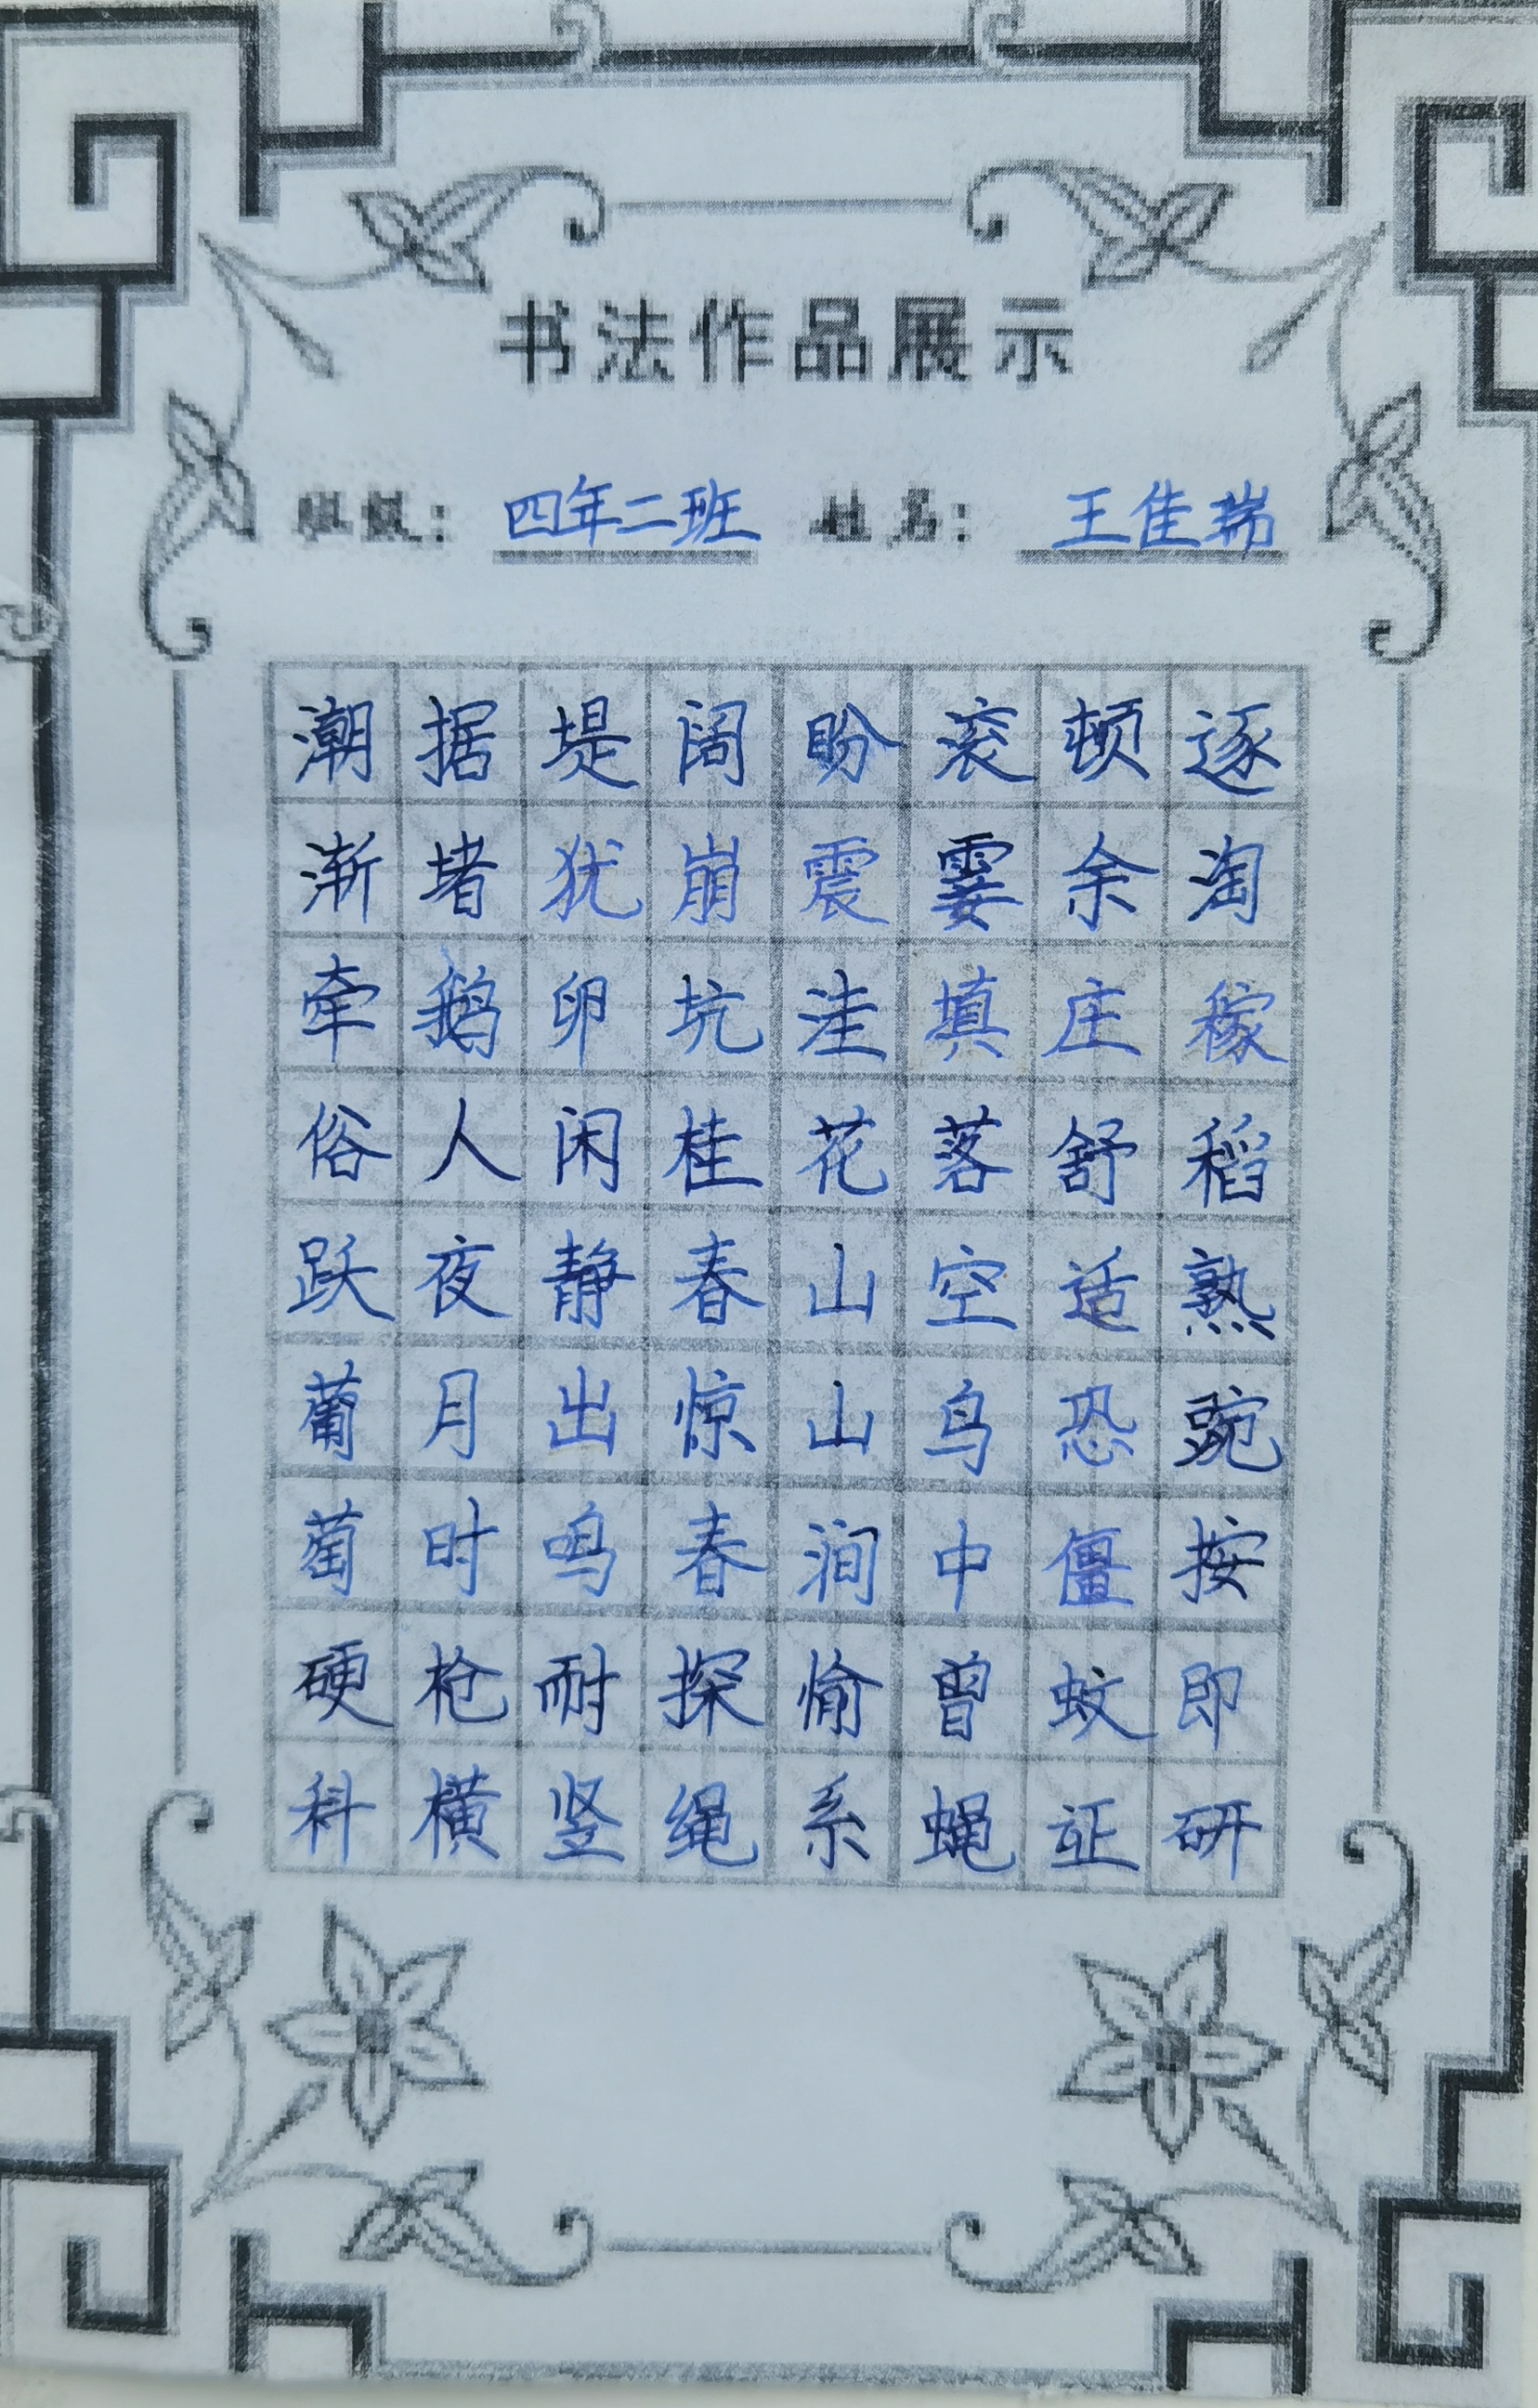 书法作品展示
班级：四年二班 姓名：王佳瑞
潮据堤阔盼滚顿逐
渐堵犹崩震霎余淘
牵鹅卵坑洼填庄稼
俗人闲桂花落舒稻
跃夜静春山空适熟
葡月出惊山鸟恐豌
萄时鸣春涧中僵按
硬枪耐探愉曾蚊即
科横竖绳系蝇证研